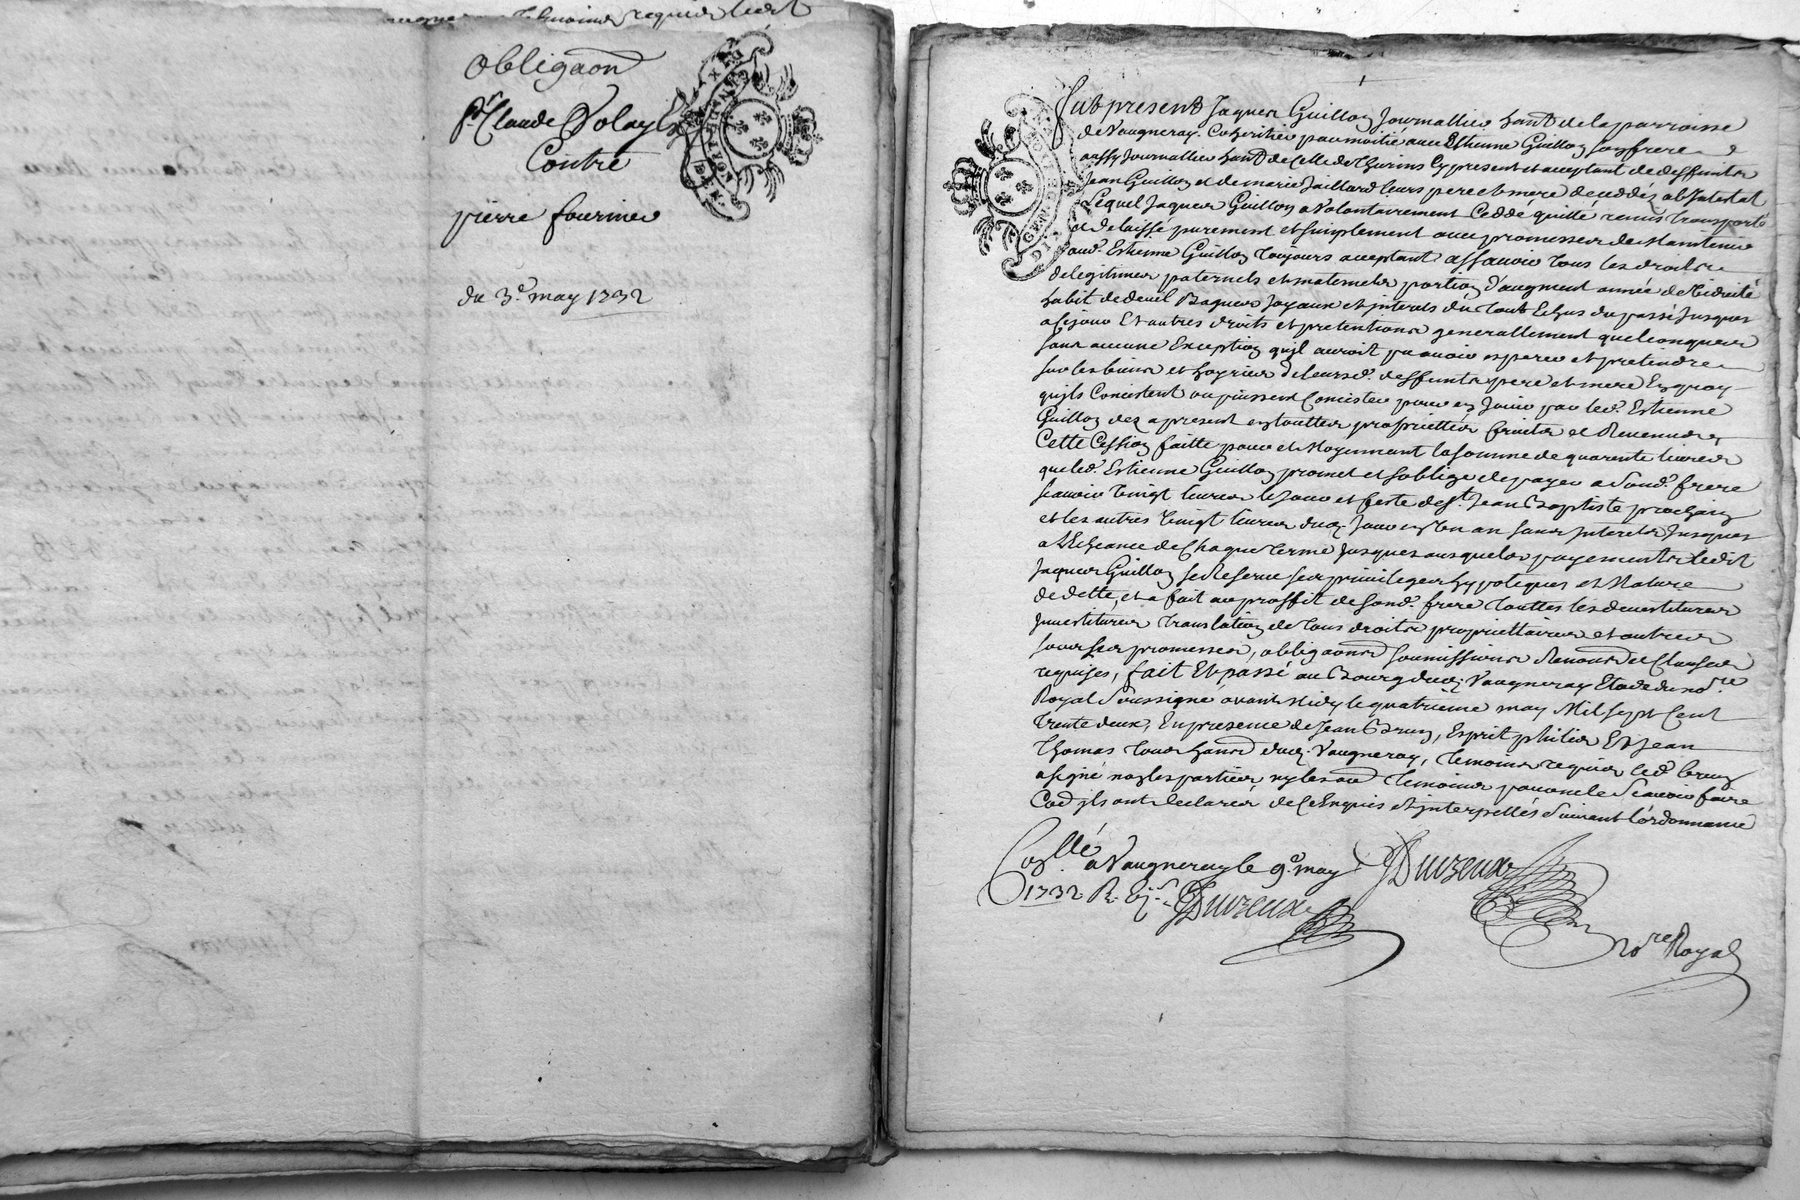 Obligaon
Sr. Claude Dolayls
Contre
pierre fournier
du 3e. may 1732
fut present Jaques Guillon Journallier habt. de la parroisse
de Vaugneray. Coheritier par moitié avec Estienne Guillon son frere
aussy Journallier habt. de Celle de Thurins Cy present et acceptant de deffuncts
Jean Guillon et de marie Jaillard leurs pere et mere deceddés abintestat
Lequel Jaques Guillon a Volontairement Ceddé quitté remis transporté
et delaissé purement et simplement avec promesses de Maintenue
aud. Estienne Guillon toujours acceptant assavoir tous les droits
de legitimes paternels et maternels portion d'augment année de Viduité
habit de deuil Bagues Joyaux et interets du tout Echus du passé Jusques
a ce jour Et autres droits et pretentions generallement quelconques
sans aucune Exception qu'il auroit pu avoir esperer et pretendre
sur les biens et hoyries de leursd. deffuncts pere et mere En quoy
qu'ils Concistent ou puissent Concister pour en Jouir par led. Estienne
Guillon dez a present en touttes proprietties fruits et Revennus
Cette Cession faitte pour et Moyennant la somme de quarente livres
que led. Estienne Guillon promet et soblige de payer a sond. frere
scavoir Vingt livres le Jour et feste de st. Jean Baptiste prochain
et les autres Vingt livres dud. Jour en Un an sans Interets Jusques
a L'Echeance de Chaque terme Jusques ausquels payements ledit
Jaques Guillon se Reserve ses privileges hypoteques et Nature
de dette, et a fait au proffit de sond. frere touttes les devestitures
Investitures translation de tous droits proprietaires et autres
sous ses promesses, obligaons soumissions Renons et Clauses
requises, fait Et passé au Bourg dud. Vaugneray Etude du nore.
Royal Soussigné avant Midy le quatrieme may Mil sept Cent
trente deux, En presence de Jean Brun, Esprit philis Et Jean
Thomas tous habans dud. Vaugneray, temoins requis led. brun
a signé non les parties ny les aud temoins pour ne le Scavoir faire
Co'd ils ont declarés de ce Enquis et interpellés Suivant l'ordonnance
Conllé a Vaugneray le 9e. may
1732
Duvzeux
Duvzeux
Nore Royal